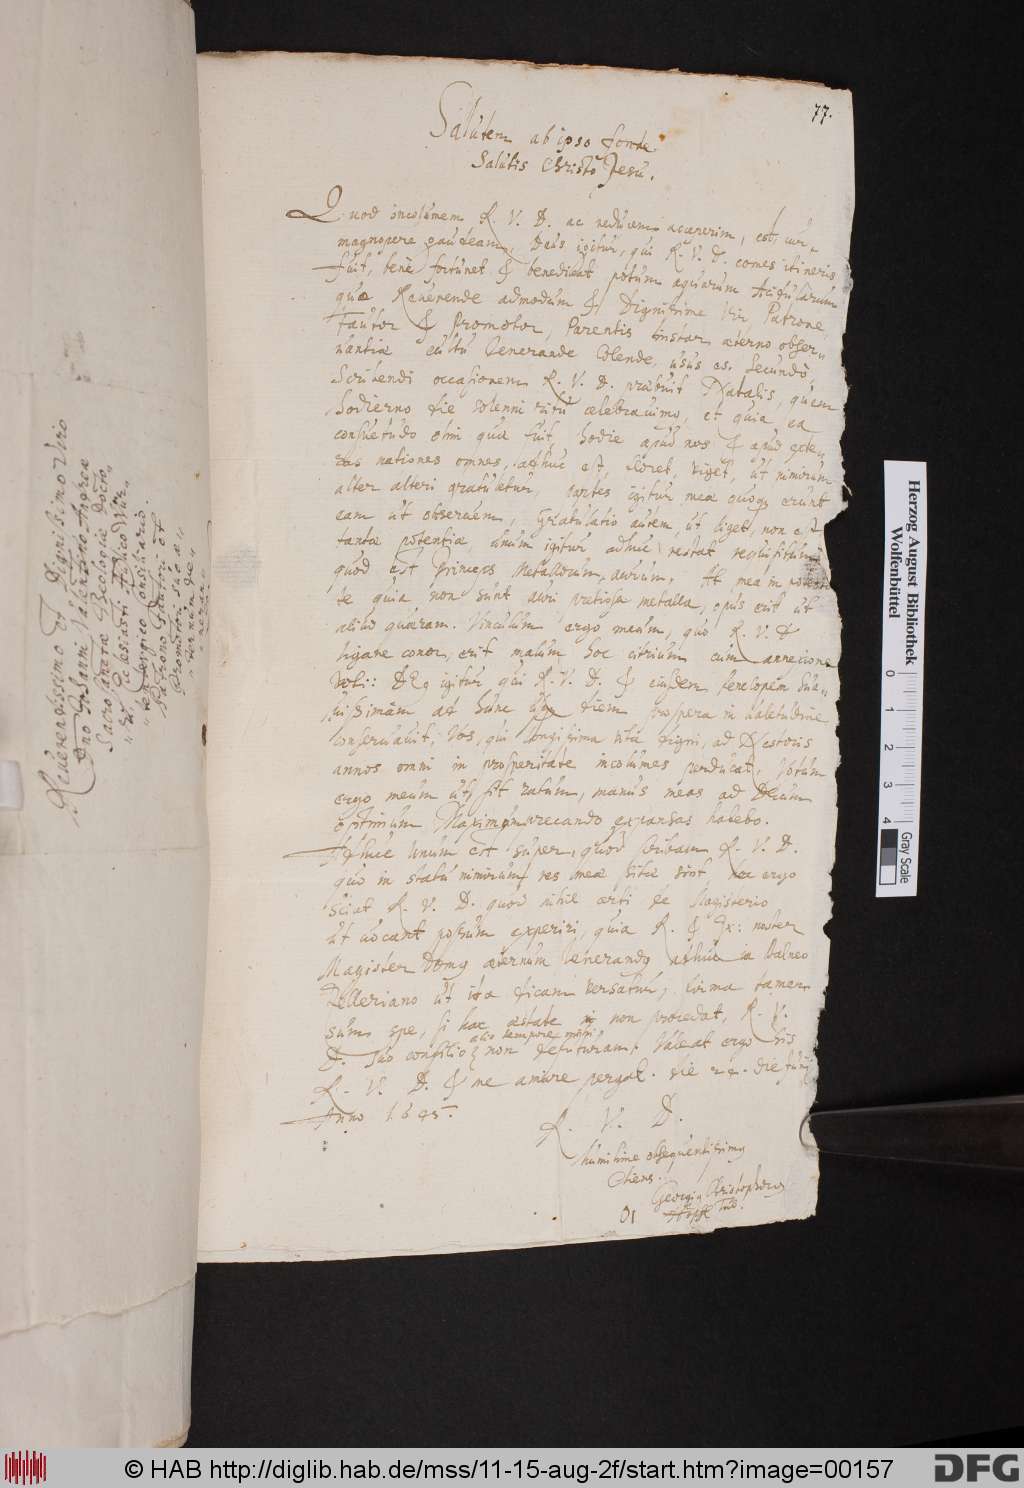 77.
Salutem ab ipso fonte
Salutis Christo Jesu.
Quod incolumem R. V. D. ac reducem acceperim, est, cur
magnopere gaudeam, Deus igitur, qui R. V. D. comes itineris
fuit, benè fortunet & benedicat potum aquarum Acidularum
quæ Reverende admodum & Dignissime Vir Patrone
Fautor & Promotor, Parentis instar æterno obser„
vantiæ cultu Venerande Colende, usus es. Secundò,
Scribendi occasionem R. V. D. præbuit Natalis, quem
hodierno die solenni ritu celebravimus, et quia ea
consuetudo olim quæ fuit, hodie apud nos & apud exte„
ras nationes omnes, adhuc est, floret, viget, ut nimirum
alter alteri gratuletur, partes igitur meæ quoq; erunt
eam ut observem, Gratulatio autem, ut liget, non est
tantæ potentiæ, unum igitur adhuc restat requisitum
quod est Princeps Metallorum, aurum, At mea in
te quia non sunt auri pretiosa metalla, opus erit ut
aliud quæram. Vinculum ergo meum, quo R. V. D
ligare conor, erit malum hoc citrium cum annexione
Voti: DEq igitur qui R. V. D. & ejusdem Penelopem sua„
vissimam ad hunc usq; diem prospera in valetudine
conservavit, Vos, qui longissima vita digni, ad Nestoris
annos omni in prosperitate incolumes perducat, Votum
ergo meum ut sit ratum, manus meas ad Deum
optimum Maximum precando expansas habebo.
Adhuc unum est super, quod scribam R. V. D.
quo in statu nimirum res meæ sitæ sint
ergo
sciat R. V. D. quod nihil certi de Magisterio
ut vocant possum experiri, quia R. & Ex: noster
Magister Domq æternum Venerandq adhuc in Balneo
Zelleriano ut ita dicam versatur, firma tamen
sum spe, si hac æstate non procedat, R. V.
alio tempore mihi
D. suo consilio non defuturam. Valeat ergo his
R. V. D. & me amare pergat. die 24. die Junij
Anno 1645.
R. V. D.
humilime obsequentissimq
Cliens.
Georgiq Christophorq
Reverendissimo et Dignissimo Viro
Dno Johanni Valentino Andreæ
Sacrosanctæ Theologiæ Docto„
ri Ecclesiasti Aulico Wür„
tenbergico Consiliario.
Patrono Fautori et
Promotori suo æ„
ternum de„
Herzog August Bibliothek
Wolfenbüttel
0 1 2 3 4
Gray Scale
© HAB http://diglib.hab.de/mss/11-15-aug-2f/start.htm?image=00157
DFG